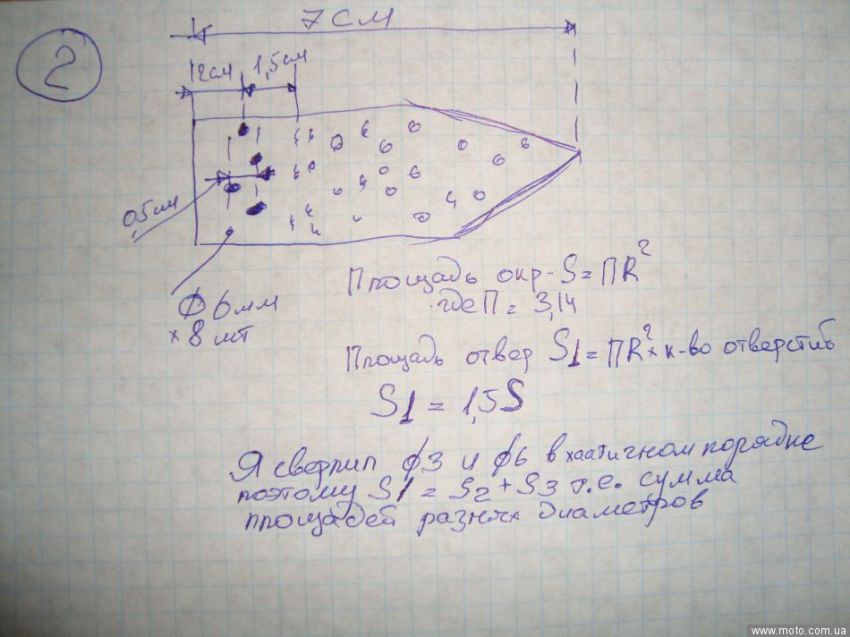 2
7 СМ
2см 1,5см
0,5см
Ф 6мм
х 8 шт
Площадь окр- S = ПR²
где П = 3,14
Площадь отвер S1 = ПR² х к-во отверстий
S1 = 1,5S
Я сверлил ф3 и ф6 в хаатичном порядке
поэтому S1 = S2 + S3 т.е. сумма
площадей разных диаметров
www.moto.com.ua